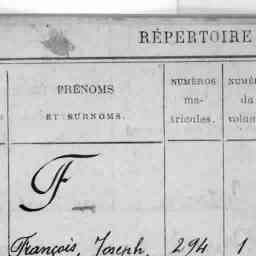 RÉPERTOIRE
PRÉNOMS
ET SURNOMS.
NUMÉROS
ma-
tricules.
du
F
François, Joseph, 294 1